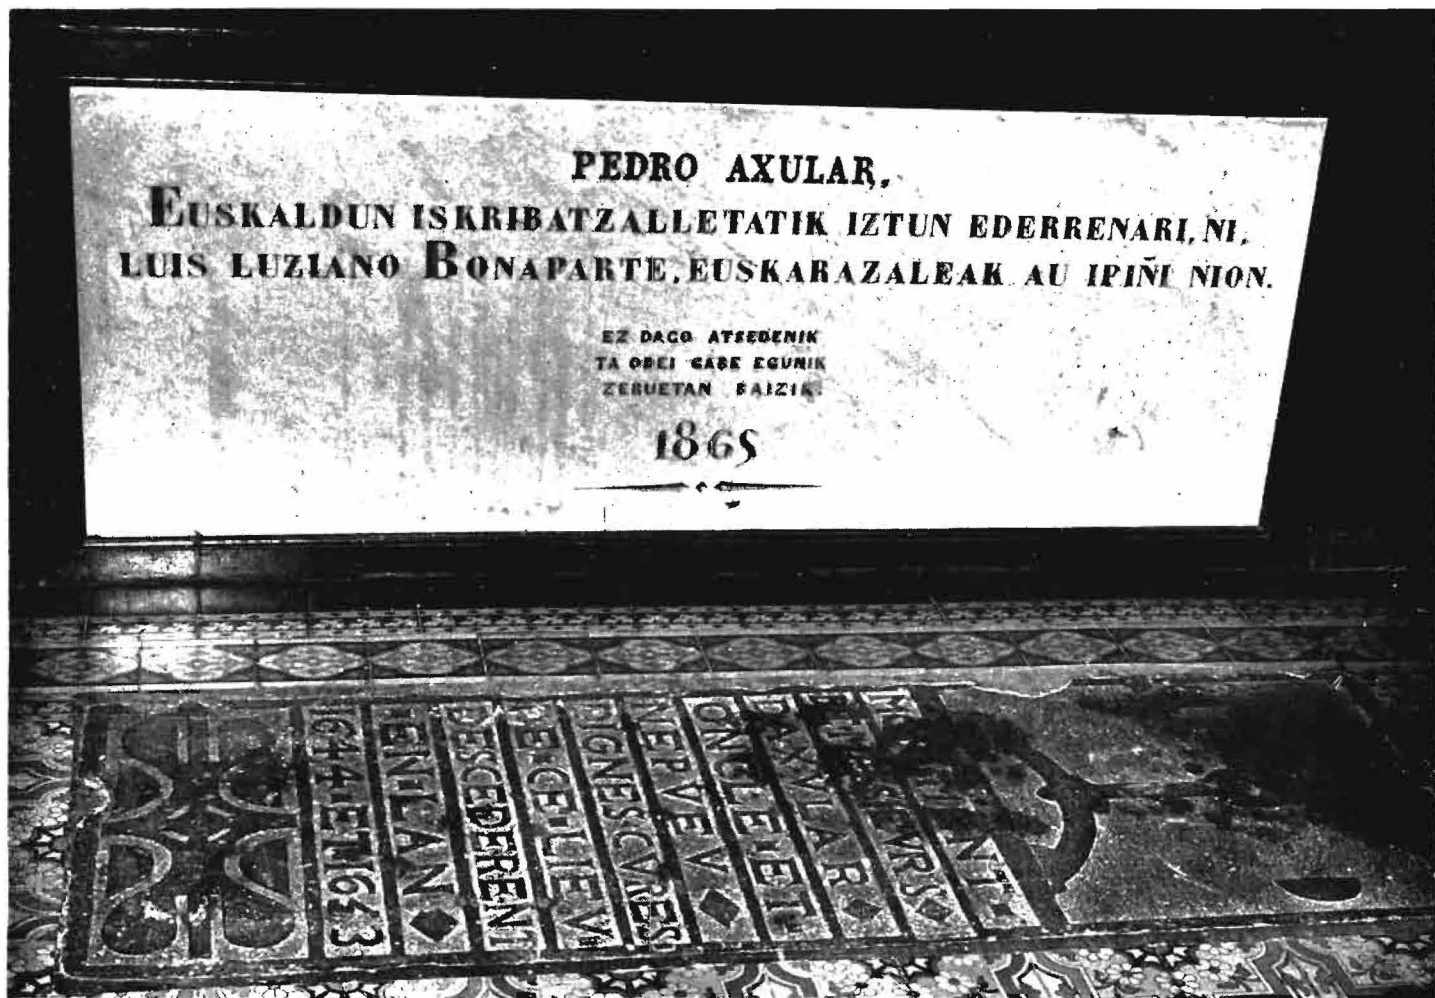 PEDRO AXULAR,
EUSKALDUN ISKRIBATZALLETATIK IZTUN EDERRENARI, NI,
LUIS LUZIANO BONAPARTE, EUSKARAZALEAK AU IPIÑI NION.
EZ DAGO ATSEDENIK
TA OBEI GABE EGUNIK
ZERUETAN BAIZIK.
1865
DAXVLAR
ONCLE·ET
NERVEV
DIGNESCVRES
DE·CE·LIEV
DESCEDERENT
EN·LAN
1644·ET1653